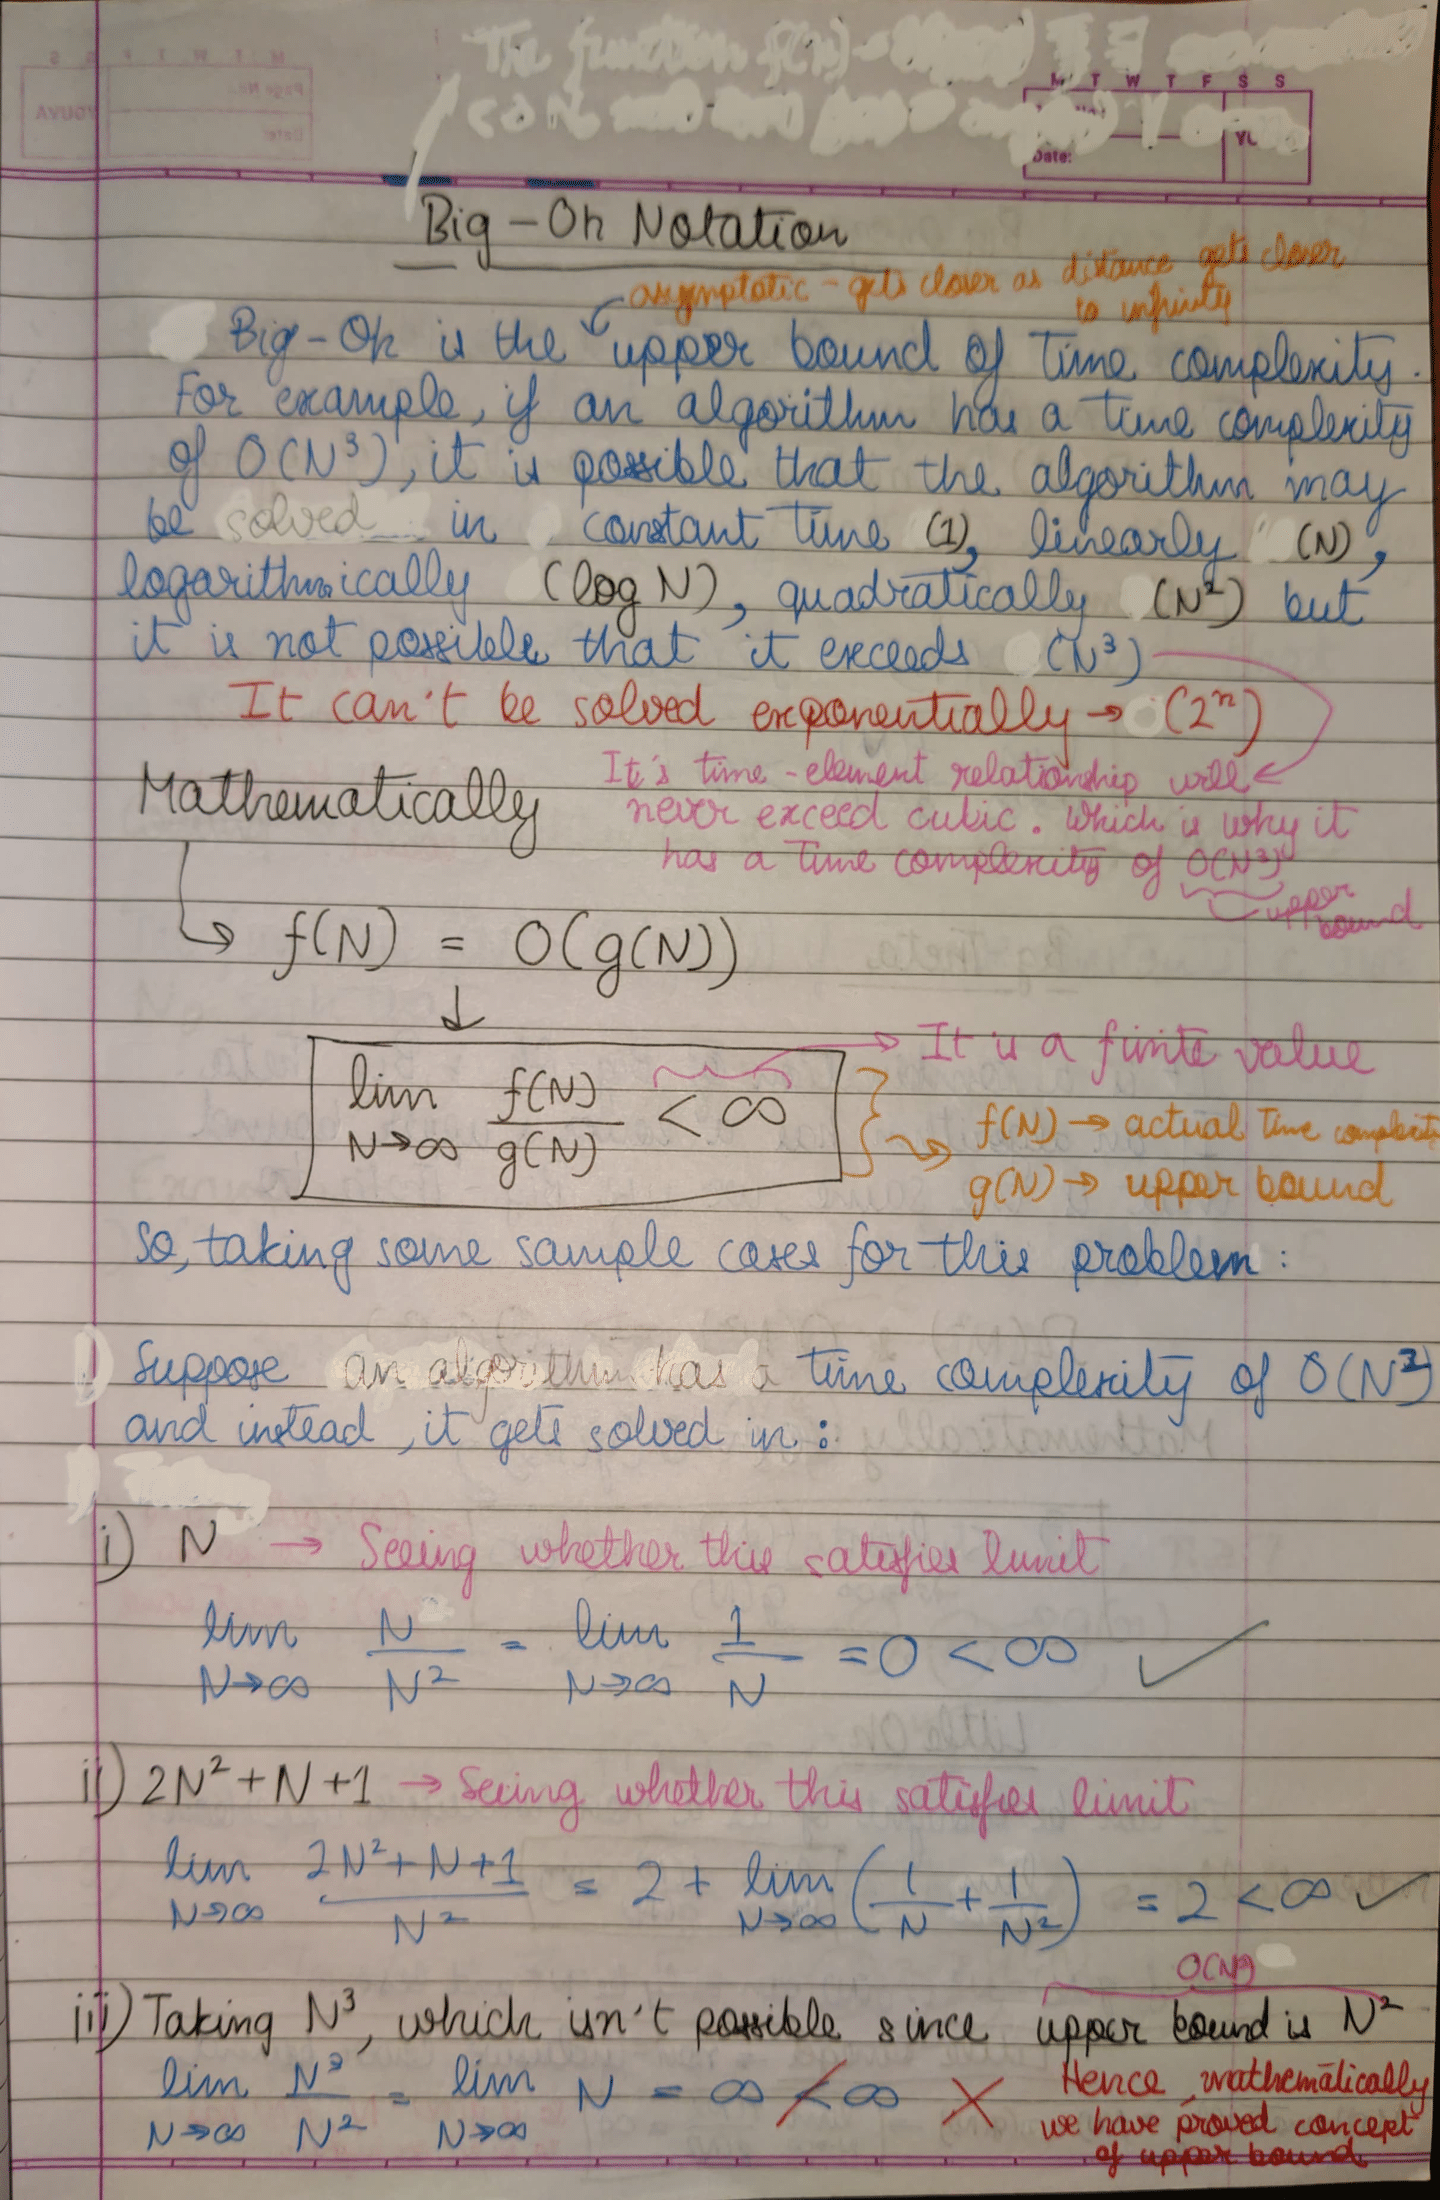 The function f(N) -
M T W T F S S
Date:
YOUVA
Big-Oh Notation
asymptotic - gets closer as distance gets closer
to infinity
Big-Oh is the upper bound of time complexity.
For example, if an algorithm has a time complexity
of O(N³), it is possible that the algorithm may
be solved in constant time (1), linearly (N),
logarithmically (log N), quadratically (N²) but
it is not possible that it exceeds (N³)
It can't be solved exponentially → (2ⁿ)
Mathematically
It's time-element relationship will
never exceed cubic. Which is why it
has a time complexity of O(N³)
upper
bound
f(N) = O(g(N))
lim N→∞ f(N)/g(N) < ∞
→ It is a finite value
f(N) → actual time complexity
g(N) → upper bound
So, taking some sample cases for this problem:
Suppose an algorithm has a time complexity of O(N²)
and instead, it gets solved in:
i) N → Seeing whether this satisfies limit
lim N→∞ N/N² = lim N→∞ 1/N = 0 < ∞ ✓
ii) 2N²+N+1 → Seeing whether this satisfies limit
lim N→∞ (2N²+N+1)/N² = 2 + lim N→∞ (1/N + 1/N²) = 2 < ∞ ✓
O(N²)
iii) Taking N³, which isn't possible since upper bound is N²
lim N→∞ N³/N² = lim N→∞ N = ∞ ≮ ∞ ✗
Hence, mathematically
we have proved concept
of upper bound